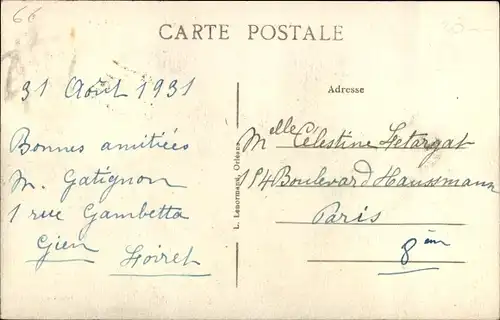 66
CARTE POSTALE
31 Août 1931
Adresse
Bonnes amitiées
M. Gatignon
1 rue Gambetta
Gien
Loiret
L. Lenormand, Orléans
Melle Célestine Letargat
154 Boulevard Haussmann
Paris
8ème